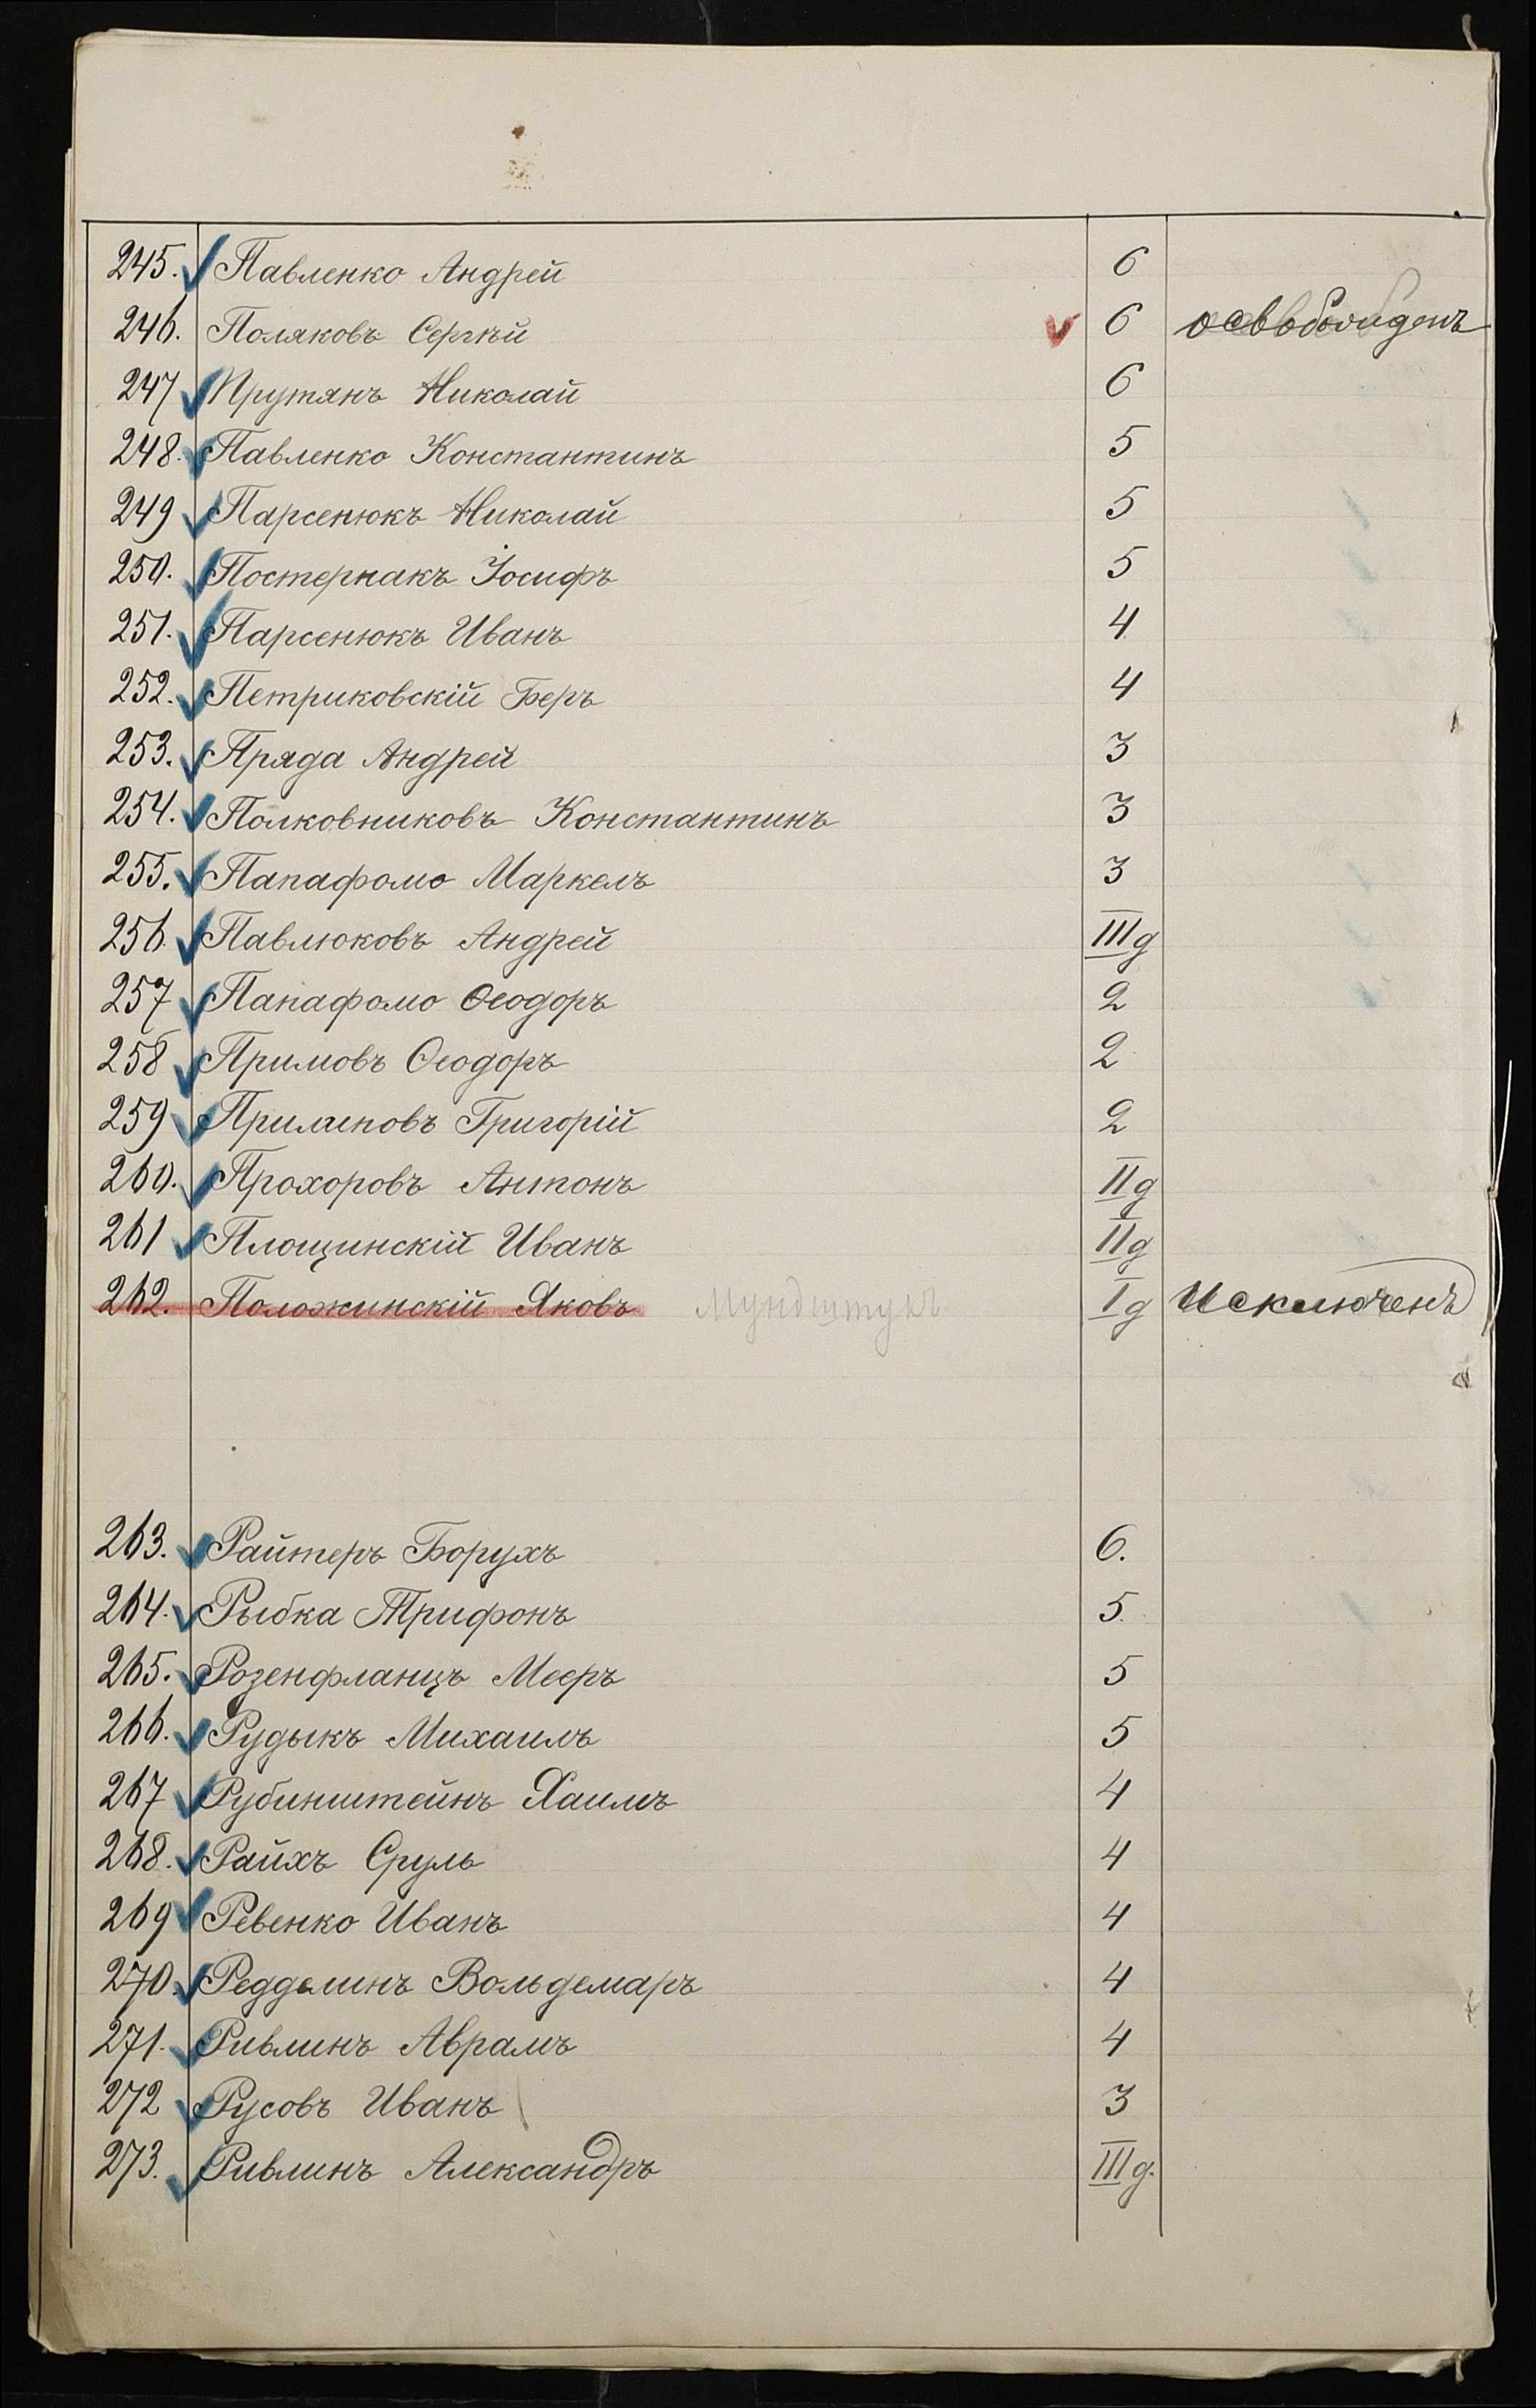 245. Павленко Андрей 6
246. Поляковъ Сергѣй 6 освобожденъ
247 Прутянъ Николай 6
248. Павленко Константинъ 5
249 Парсенюкъ Николай 5
250. Постернакъ Іосифъ 5
251. Парсенюкъ Иванъ 4
252. Петриковскій Беръ 4
253. Пряда Андрей 3
254. Полковниковъ Константинъ 3
255. Папафомо Маркелъ 3
256. Павлюковъ Андрей III д
257 Папафомо Ѳеодоръ 2
258 Примовъ Ѳеодоръ 2
259 Григорій 2
260. Прохоровъ Антонъ II д
261 Площинскій Иванъ II д
262. Положинскій Яковъ Мундштукъ I д Исключенъ
263. Райтеръ Борухъ 6.
264. Рыбка Трифонъ 5.
265. Розенфланцъ Мееръ 5
266. Рудыкъ Михаилъ 5
267 Рубинштейнъ Хаимъ 4
268. Райхъ Сруль 4
269 Ревенко Иванъ 4
270. Редделинъ Вольдемаръ 4
271. Ривлинъ Аврамъ 4
272 Русовъ Иванъ 3
273. Ривлинъ Александръ III д.